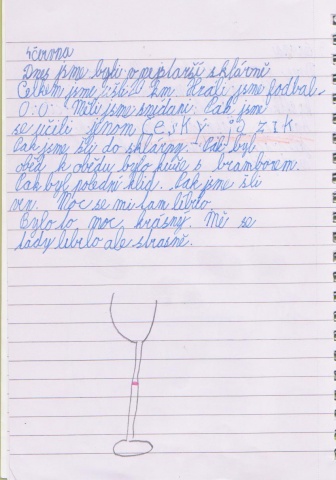 4 června
Dnes jsme byli v nejstarší sklárně
Celkem jsme ušli 8 km. Hráli jsme fodbal-
0:0. Měli jsme snýdani. Pak jsme
se učili jenom Český jazik
Pak jsme šli do sklárny. Pak byl
oběd k obědu bylo kuře s bramborem.
Pak byl polední klid. Pak jsme šli
ven. Moc se mi tam líbilo.
Bylo to moc krásný. Mě se
tady líbilo ale strašně.